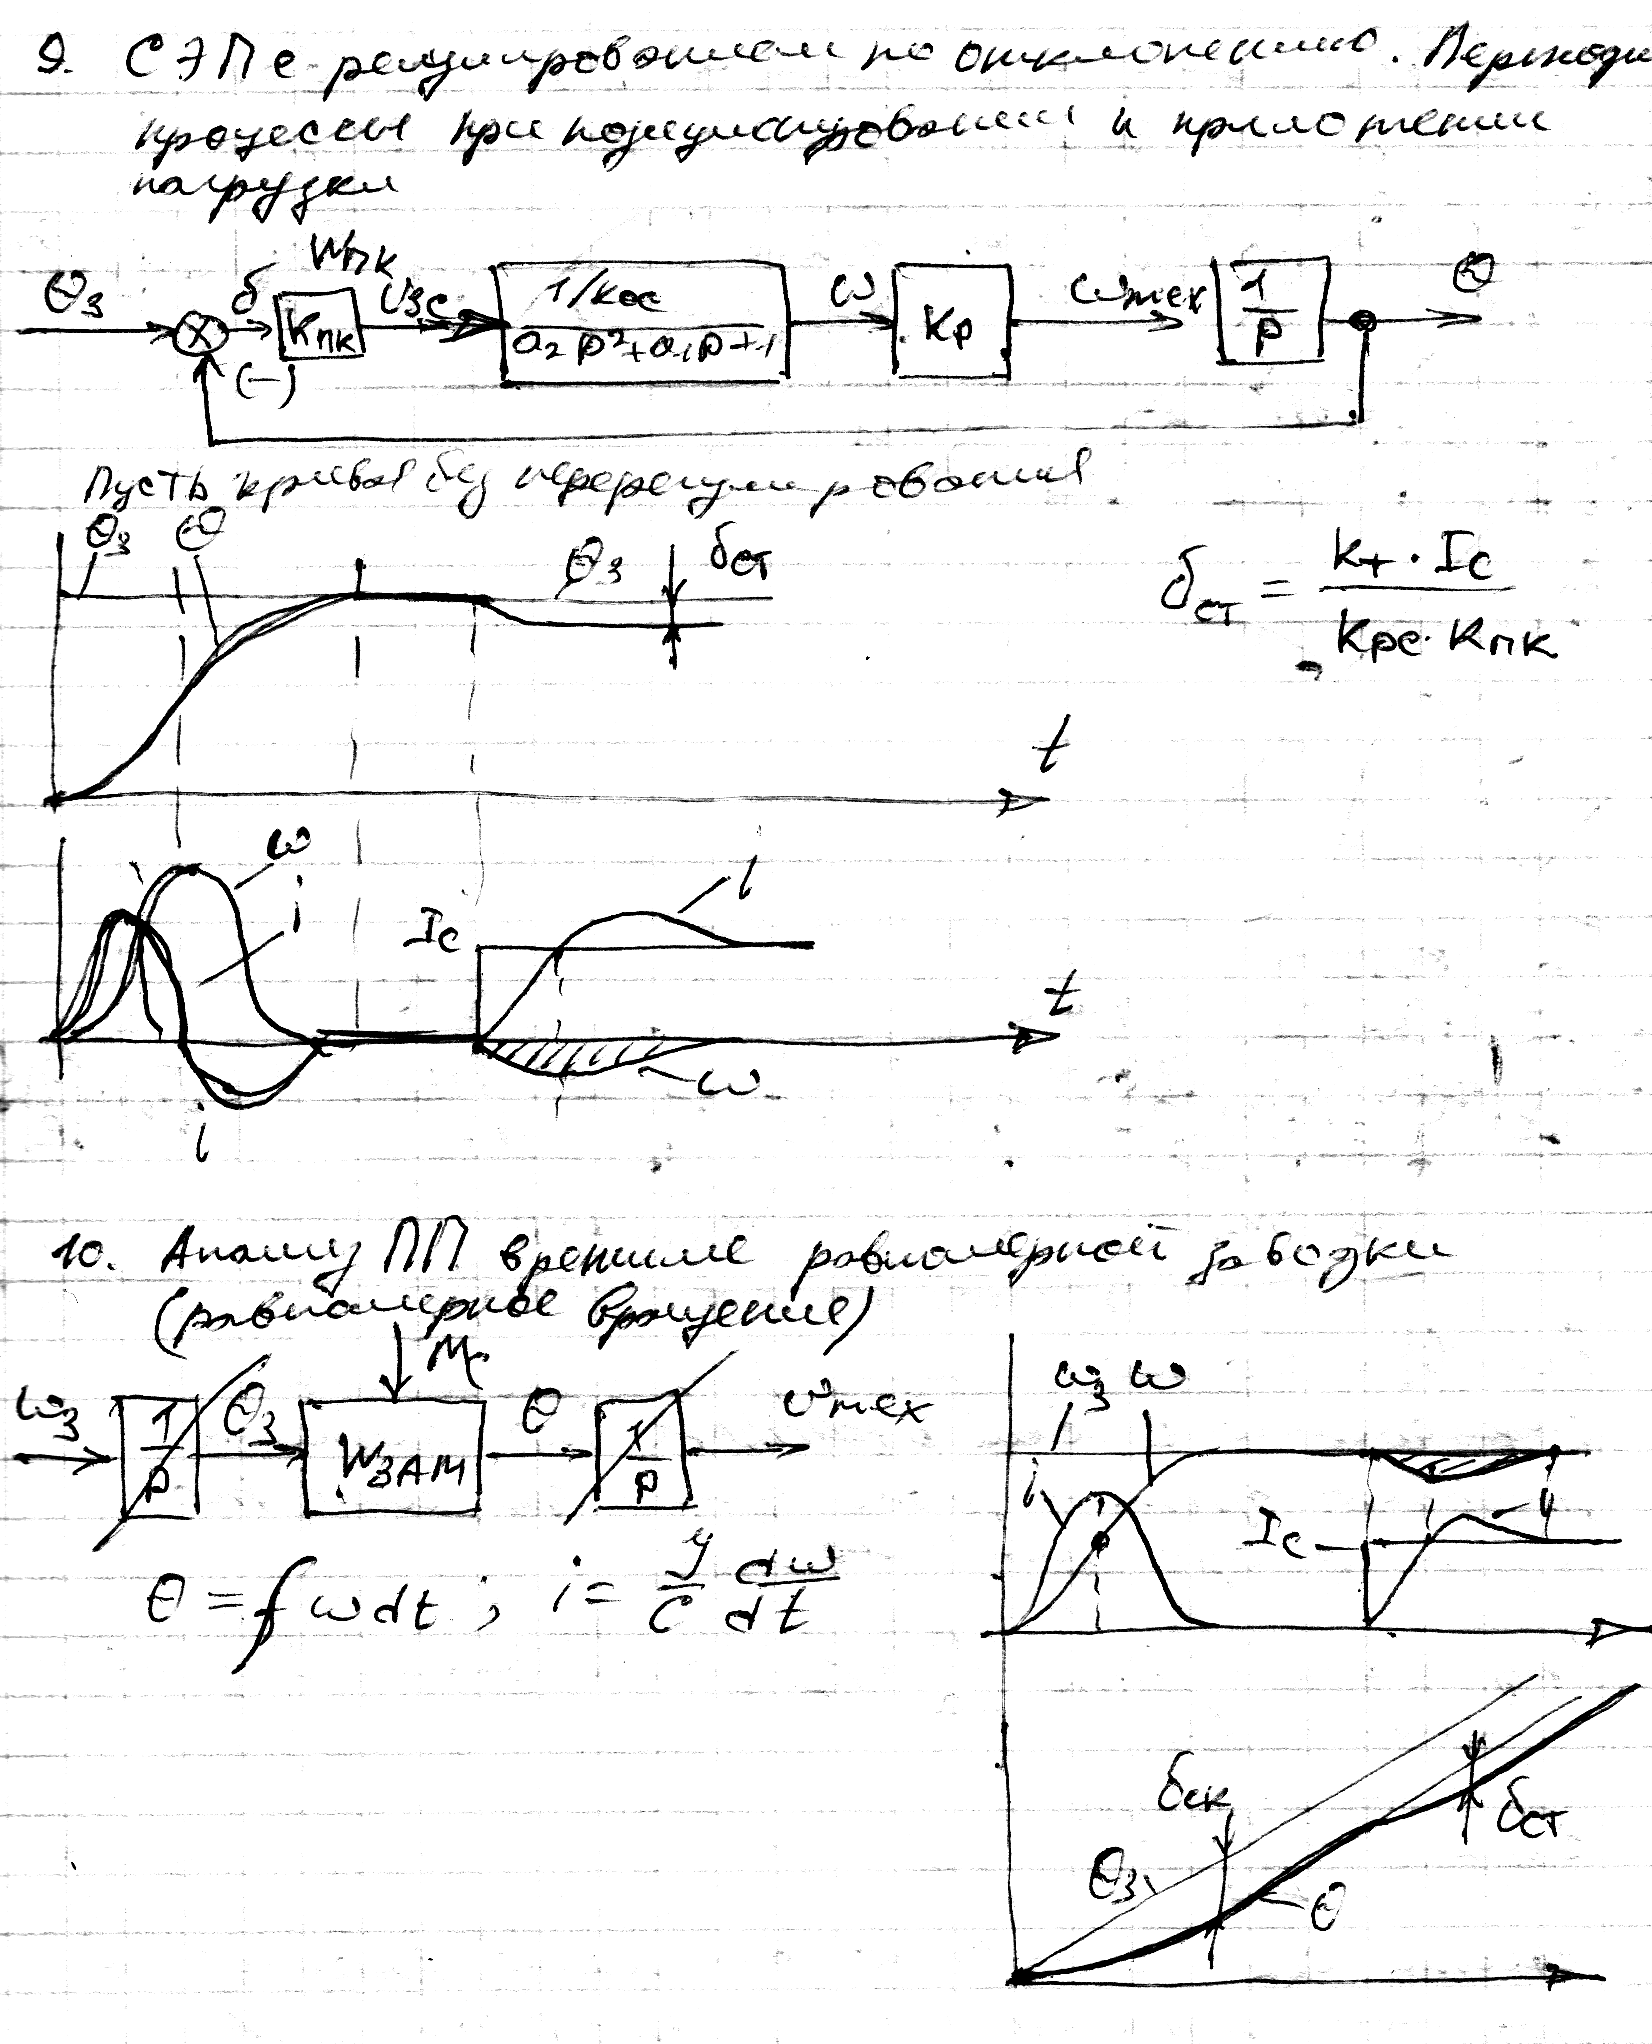 9. СЭП с регулированием по отклонению. Переходн
процессы при позиционировании и приложении
нагрузки
θз δ Wпк Kпк Uзс 1/Kос ω Kр ωмех 1/p θ
a₂p²+a₁p+1
(−)
Пусть кривая без перерегулирования
θз θ θз δст
δст = Kт · Iс / Kрс · Kпк
t
ω
i Iс i
t
ω
i
10. Анализ ПП в режиме равномерной заводки
(равномерное вращение)
Mс
ωз 1/p θз Wзам θ 1/p υмех
θ = ∫ωdt ; i = J/C dω/dt
ωз ω
i Iс i
δск δст
θз θ